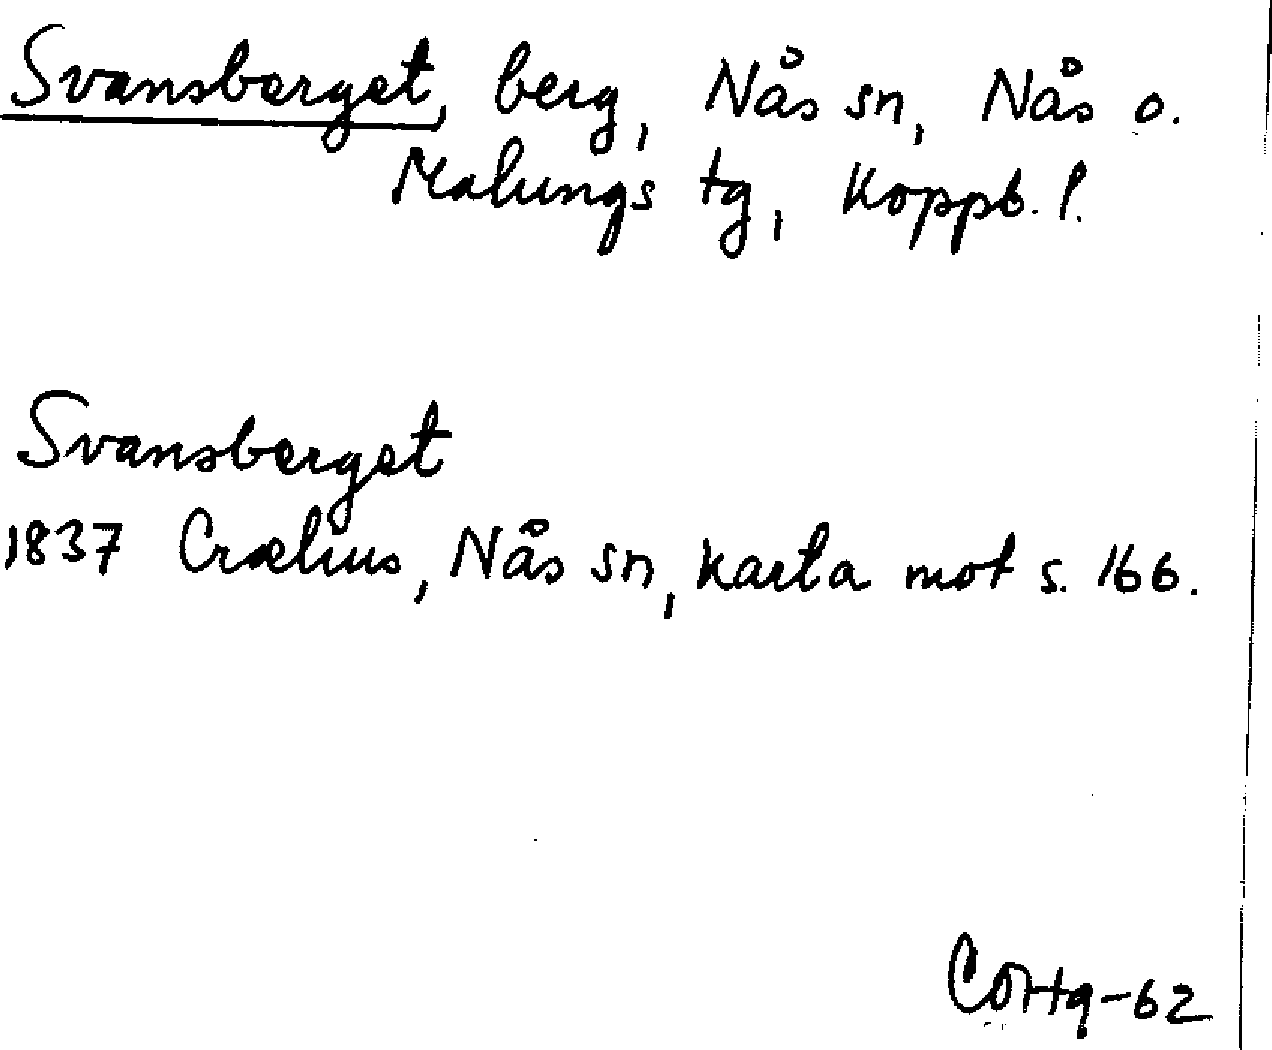 Svansberget, berg, Nås sn, Nås o.
Malungs tg, Koppb. l.
Svansberget
1837 Crælius, Nås sn, karta mot s. 166.